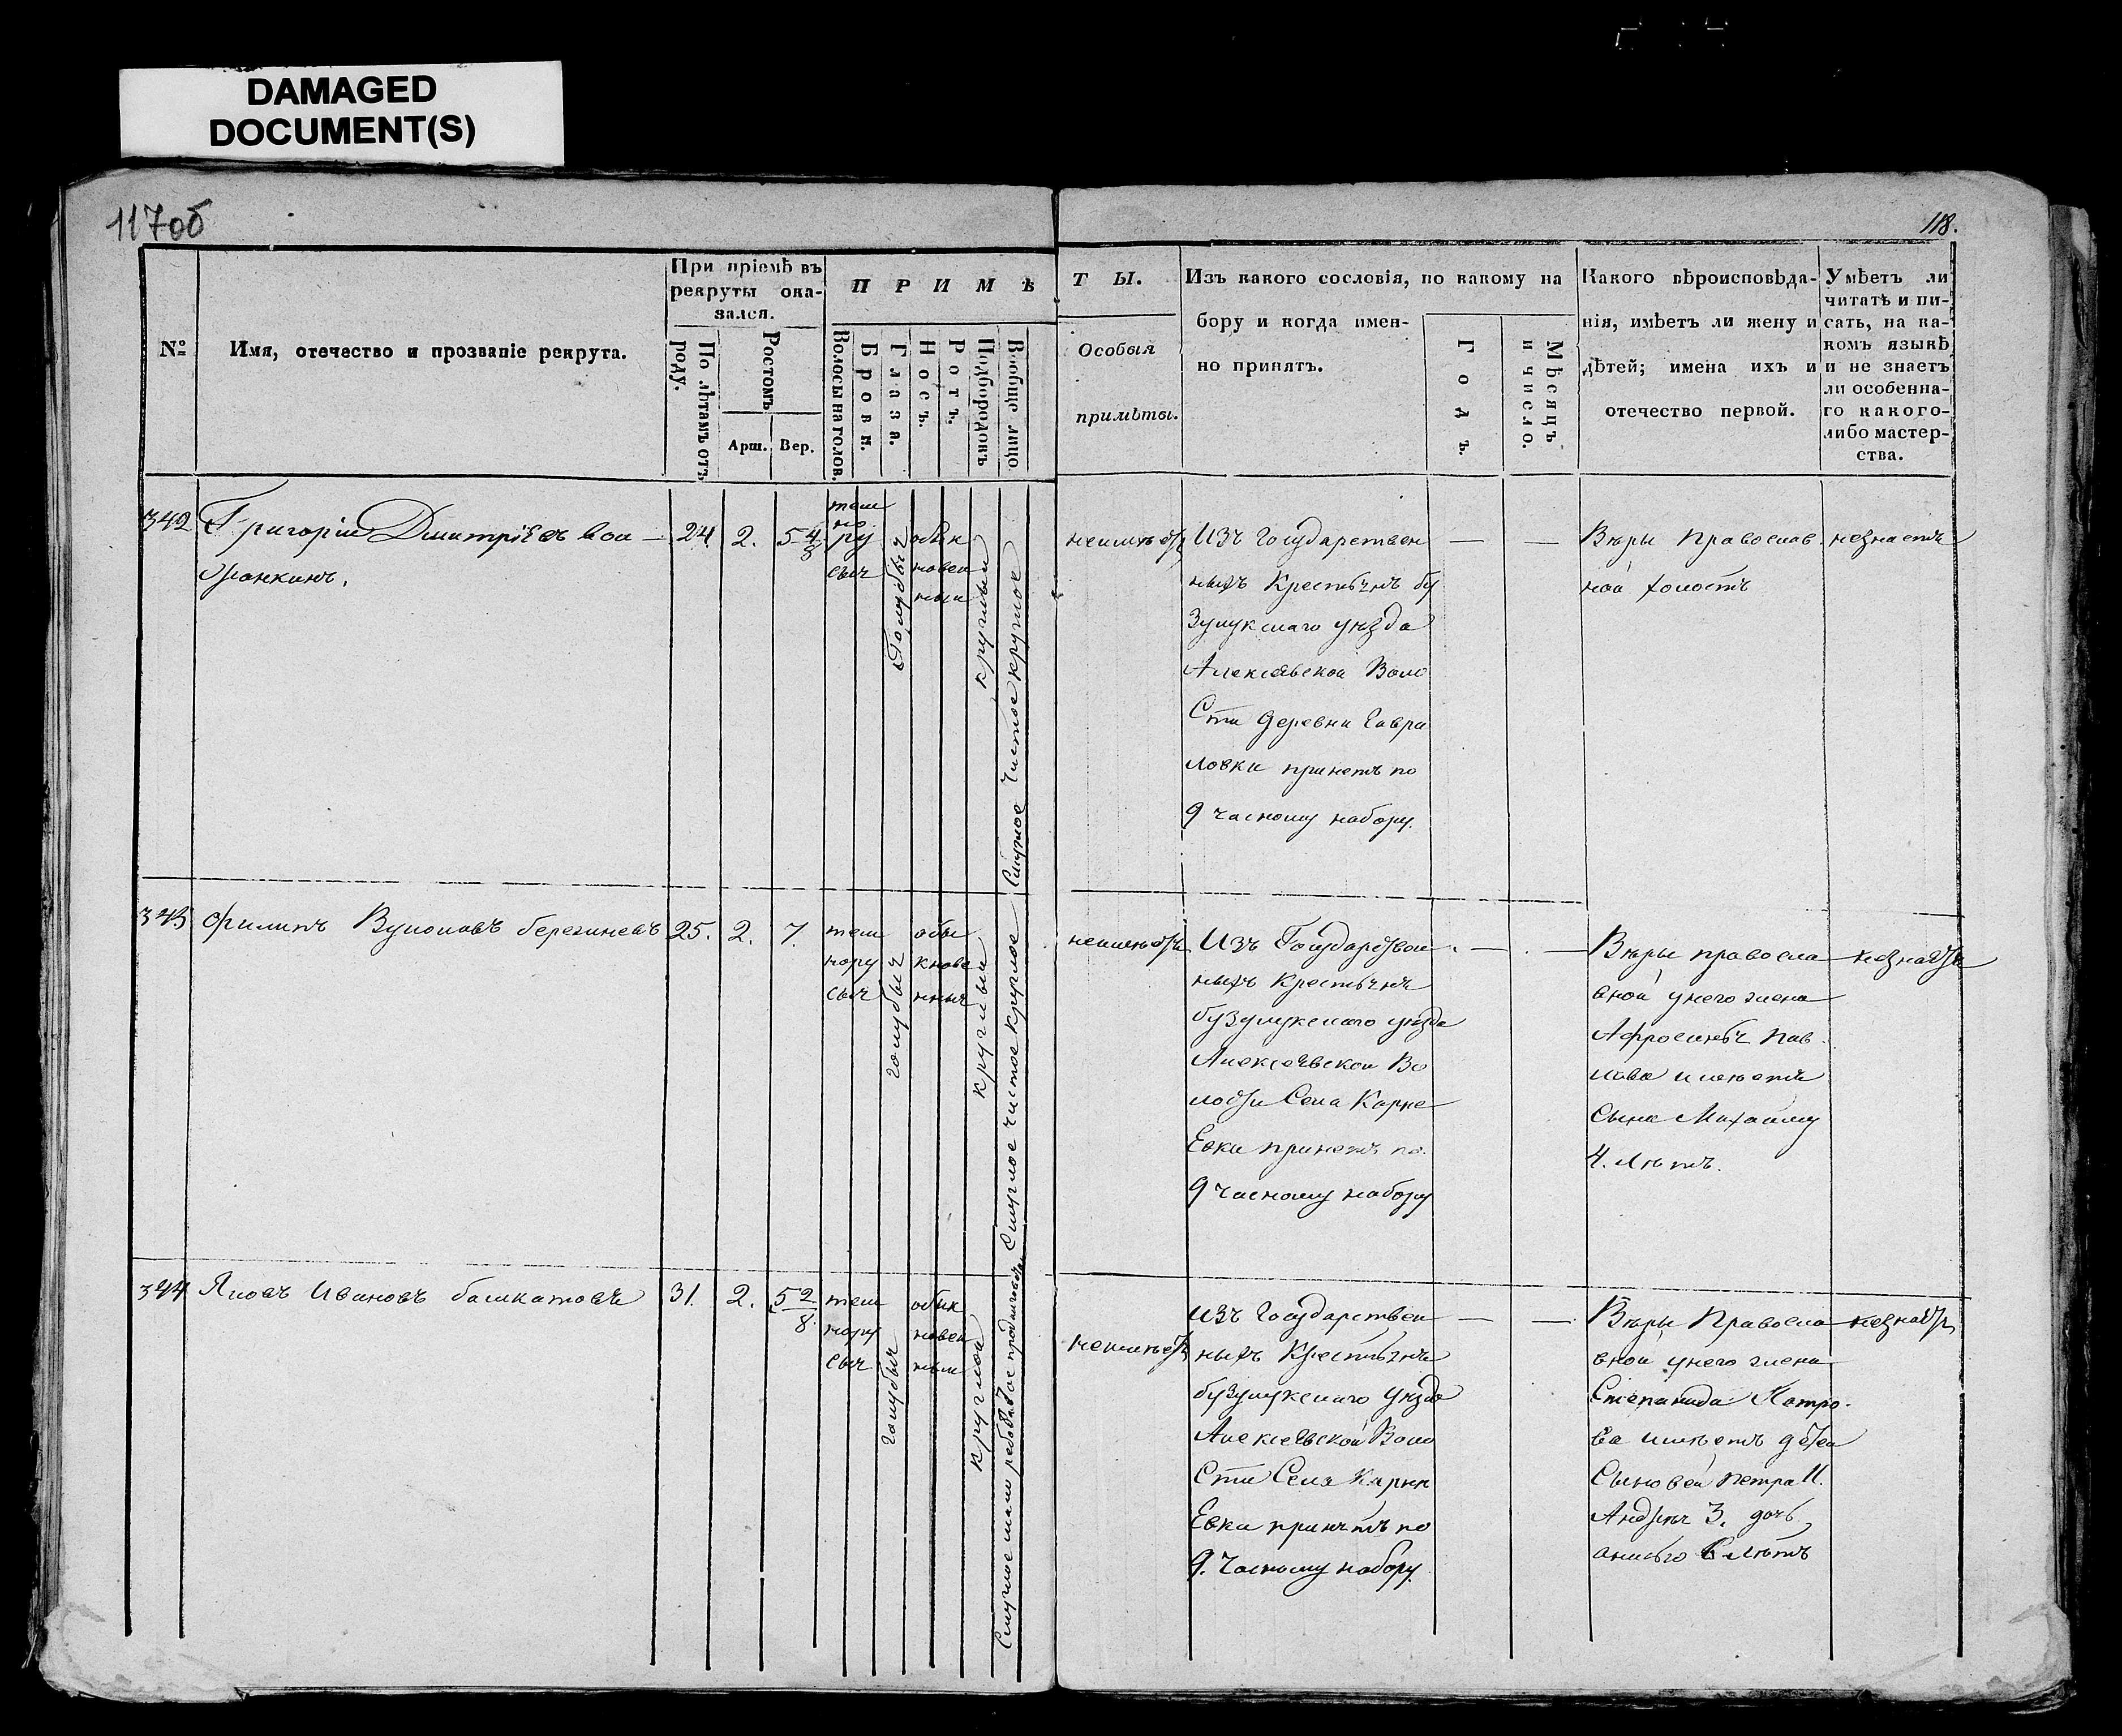 DAMAGED
DOCUMENT(S)
117об
118.
№
Имя, отечество и прозваніе рекрута.
При пріемѣ въ
рекруты ока-
зался.
По лѣтамъ отъ
роду.
Ростомъ
Арш.
Вер.
ПРИМѢ
ТЫ.
Волосы на голов.
Брови.
Глаза.
Носъ.
Ротъ.
Подбородокъ
Вообще лицо
Особыя
примѣты.
Изъ какого сословія, по какому на
бору и когда имен-
но принятъ.
Годъ.
Мѣсяцъ
и число.
Какого вѣроисповѣда-
нія, имѣетъ ли жену и
дѣтей; имена ихъ и
отечество первой.
Умѣетъ ли
читать и пи-
сать, на ка-
комъ языкѣ
и не знаетъ
ли особенна-
го какого-
либо мастер-
ства.
342
Григорій Дмитріевъ
24.
2.
5 4/8
тем
но
ру
сыя
Голубыя
обык
новен
ный
круглый
Смуглое чистое круглое
неимѣетъ
Изъ Государствен
ныхъ Крестьянъ бу
зулукскаго уѣзда
Алексѣевской Воло
Сти деревни Гаври
ловки принетъ по
9 часному набору.
—
—
Вѣры Православ
ной холостъ
незнаетъ
343
Филипъ Вуколовъ
25.
2.
7.
тем
нору
сыя
голубыя
обы
кнове
нныя
круглый
Смуглое чистое круглое
неимѣетъ
Изъ Государствен
ныхъ Крестьянъ
бузулукскаго уѣзда
Алексеевской Во
лости Села Корне
Евки принетъ по
9 часному набору
—
—
Вѣры правосла
вной унего жена
Афросинья Пав
лова имеетъ
Сына Михаилу
4. Лѣтъ.
незнаетъ
344
Яковъ Ивановъ башкатовъ
31.
2.
5 2/8.
тем
нору
сыя
голубыя
обык
новен
ный
круглой
Смуглое мало рябоватое
неимѣетъ
изъ Государствен
ныхъ Крестьянъ
бузулукскаго уѣзда
Алексеевской Воло
Сти Села Карне
Евки принятъ по
9. Часному набору.
—
—
Вѣры Правосла
вной унего жена
Степанида Петро
ва имѣетъ детей
Сыновей петра 11.
Андрея 3. дочь
лѣтъ
незнаетъ